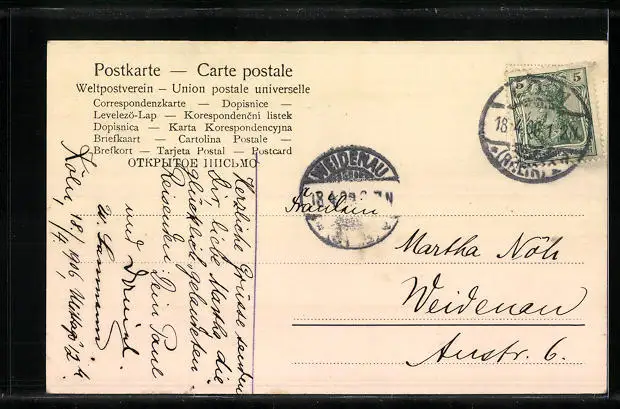 Postkarte — Carte postale
Weltpostverein — Union postale universelle
Correspondenzkarte — Dopisnice —
Levelező-Lap — Korespondenční listek
Dopisnica — Karta Korespondencyjna
Briefkaart — Cartolina Postale —
Brefkort — Tarjeta Postal — Postcard
ОТКРЫТОЕ ПИСЬМО
5 5
WEIDENAU
18.4.
Fräulein
Martha Nöh
Weidenau
Austr. 6.
Herzliche Grüsse senden
Dir, liebe Martha die
glücklich gelandeten
Reisenden. Dein Paul
und
Köln, 18/4 1906